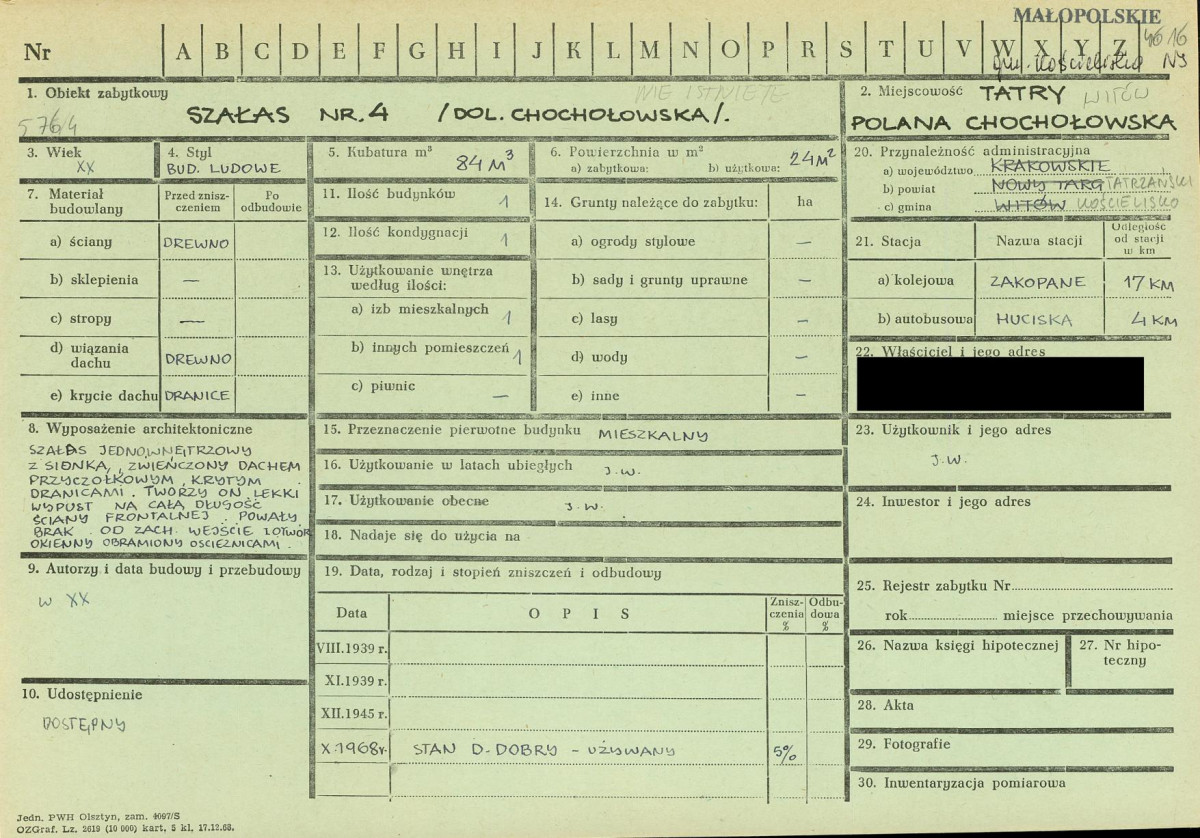 MAŁOPOLSKIE
Nr A B C D E F G H I J K L M N O P R S T U V W X Y Z
4616
gm. Kościelisko NS
1. Obiekt zabytkowy
NIE ISTNIEJE
SZAŁAS NR. 4 /DOL. CHOCHOŁOWSKA/.
2. Miejscowość TATRY WITÓW
POLANA CHOCHOŁOWSKA
3. Wiek
XX
4. Styl
BUD. LUDOWE
5. Kubatura m³ 84 M³
6. Powierzchnia w m²
a) zabytkowa: b) użytkowa: 24 M²
7. Materiał budowlany
Przed znisz-
czeniem
Po
odbudowie
a) ściany DREWNO
b) sklepienia —
c) stropy —
d) wiązania
dachu DREWNO
e) krycie dachu DRANICE
8. Wyposażenie architektoniczne
SZAŁAS JEDNOWNĘTRZOWY
Z SIONKĄ, ZWIEŃCZONY DACHEM
PRZYCZÓŁKOWYM, KRYTYM
DRANICAMI. TWORZY ON LEKKI
WYPUST NA CAŁĄ DŁUGOŚĆ
ŚCIANY FRONTALNEJ. POWAŁY
BRAK. OD ZACH. WEJŚCIE I OTWÓR
OKIENNY OBRAMIONY OŚCIEŻNICAMI.
9. Autorzy i data budowy i przebudowy
W XX
10. Udostępnienie
DOSTĘPNY
11. Ilość budynków 1
12. Ilość kondygnacji 1
13. Użytkowanie wnętrza
według ilości:
a) izb mieszkalnych 1
b) innych pomieszczeń 1
c) piwnic —
14. Grunty należące do zabytku: ha
a) ogrody stylowe —
b) sady i grunty uprawne —
c) lasy —
d) wody —
e) inne —
15. Przeznaczenie pierwotne budynku MIESZKALNY
16. Użytkowanie w latach ubiegłych J.W.
17. Użytkowanie obecne J.W.
18. Nadaje się do użycia na
19. Data, rodzaj i stopień zniszczeń i odbudowy
Data O P I S Znisz-
czenia
% Odbu-
dowa
%
VIII.1939 r.
XI.1939 r.
XII.1945 r.
X.1968r. STAN D. DOBRY – UŻYWANY 5%
20. Przynależność administracyjna
a) województwo KRAKOWSKIE
b) powiat NOWY TARG TATRZAŃSKI
c) gmina WITÓW KOŚCIELISKO
21. Stacja Nazwa stacji Odległość
od stacji
w km
a) kolejowa ZAKOPANE 17 KM
b) autobusowa HUCISKA 4 KM
22. Właściciel i jego adres
23. Użytkownik i jego adres
J.W.
24. Inwestor i jego adres
25. Rejestr zabytku Nr
rok miejsce przechowywania
26. Nazwa księgi hipotecznej
27. Nr hipo-
teczny
28. Akta
29. Fotografie
30. Inwentaryzacja pomiarowa
Jedn. PWH Olsztyn, zam. 4097/S
OZGraf. Lz. 2619 (10 000) kart. 5 kl. 17.12.68.